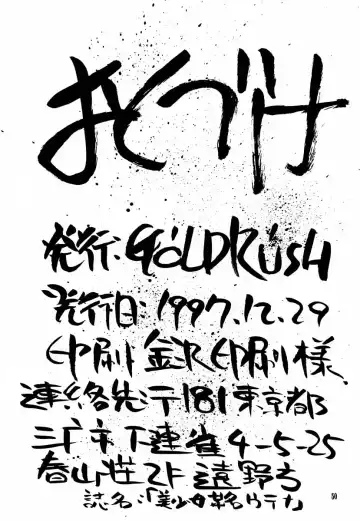 おくづけ
発行:GOLDRUSH
発行日:1997.12.29
印刷 金沢印刷様
連絡先〒181東京都
三鷹市下連雀4-5-25
春山荘2F 遠野方
誌名:「美少女革命ウテナ」
50